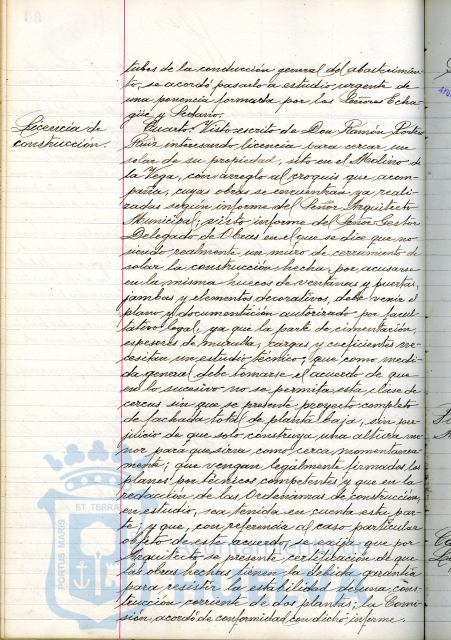 tubos de la conducción general del abastecimien-
to, se acordó pasarlo a estudio urgente de
una ponencia formada por los Señores Echa-
güe y Sectario.
Licencia de
construcción.
Cuarto. Visto escrito de Don Ramón
Ruiz interesando licencia para cercar un
solar de su propiedad, sito en el Molino de
la Vega, con arreglo al croquis que acom-
paña, cuyas obras se encuentran ya reali-
zadas según informe del Señor Arquitecto
Municipal; visto informe del Señor Gestor
Delegado de Obras en el que se dice que no
siendo realmente un muro de cerramiento de
solar la construcción hecha por acusarse
en la misma huecos de ventanas y puertas,
jambas y elementos decorativos, debe venir el
plano y documentación autorizado por facul-
tativo legal, ya que la parte de cimentación,
espesores de muralla, cargas y coeficientes ne-
cesitan un estudio técnico; que como medi-
da general debe tomarse el acuerdo de que
en lo sucesivo no se permita esta clase de
cercas sin que se presente proyecto completo
de fachada total de planta baja, sin per-
juicio de que solo construya una altura me-
nor para que sirva como cerca, momentanea-
mente; que vengan legalmente firmados los
planos por técnicos competentes y que en la
redacción de las Ordenanzas de construcción,
en estudio, sea tenida en cuenta esta par-
te; y que, con referencia al caso particular
objeto de este acuerdo, se exija que por
Arquitecto se presente certificación de que
las obras hechas tienen la debida garantía
para resistir la estabilidad de una cons-
trucción corriente de dos plantas; la Comi-
sión acordó de conformidad con dicho informe.
PORTUS MARIS
ET TERRA